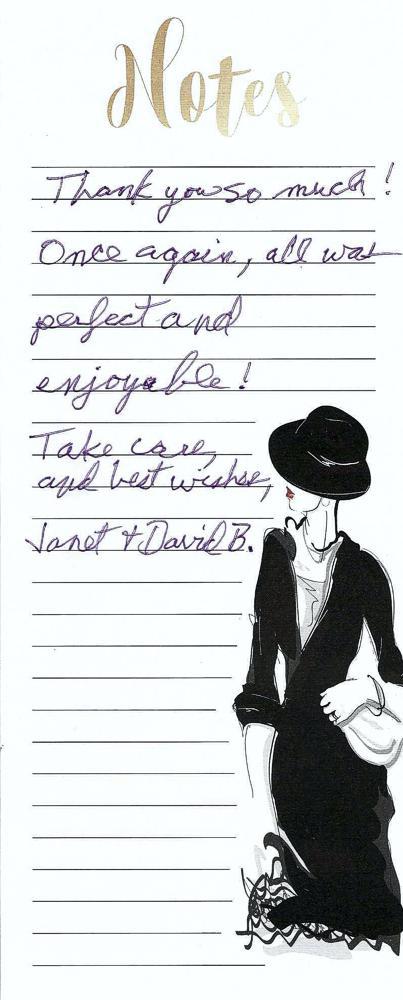 Notes
Thank you so much!
Once again, all was
perfect and
enjoyable!
Take care,
and best wishes,
Janet + David B.